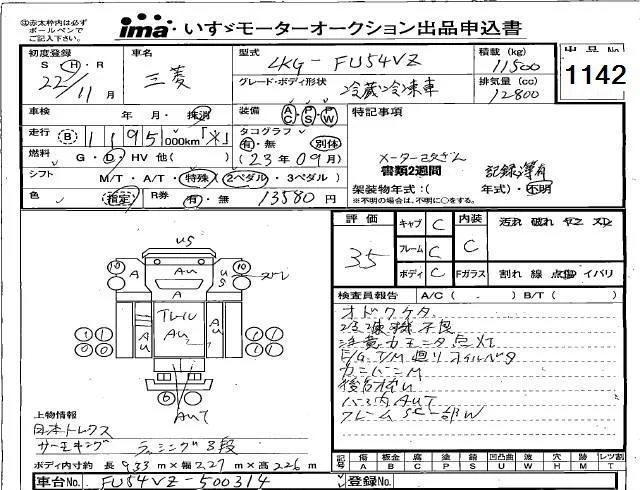 ㊟赤太枠内は必ず
ボールペンで
ご記入下さい。
ima・いすゞモーターオークション出品申込書
初度登録 S・H・R 22/11月
車名 三菱
型式 LKG-FU54VZ
積載 (kg) 11500
出品No. 1142
グレード・ボディ形状 冷蔵冷凍車
排気量 (cc) 12800
車検 年 月・抹消
装備 AC PS PW
特記事項
走行 B 1195,000km「※」
タコグラフ 有・無 別体
(23年09月)
メーター改ざん
燃料 G・D・HV 他( )
書類2週間 記録簿有
シフト M/T・A/T・特殊 2ペダル・3ペダル)
架装物年式:( 年式)・不明
※不明の場合は、不明に○をする。
色 指定 R券 有・無 13580円
評価 35
キャブ C
フレーム C
ボディ C
内装 C
Fガラス
汚れ 破れ キズ スレ
割れ 線 点傷 イバリ
検査員報告 A/C ( . ) B/T ( )
オドワケタ
冷凍機不良
E/G T/M廻りオイル
US
10 A AU US 10
A
1 1 AU TレイU AU AU 1 1
6
AUT
上物情報
日本トレクス
サーモキング ラッシング3段
ボディ内寸約 長 933 m×幅 2.27 m×高 226 m
記号 傷 A 板金 B 腐 C 塗 P 錆 S 凹凸曲 U 波 W 穴 H 跡 M レツ割 T
車台No. FU54VZ-500314
登録No.